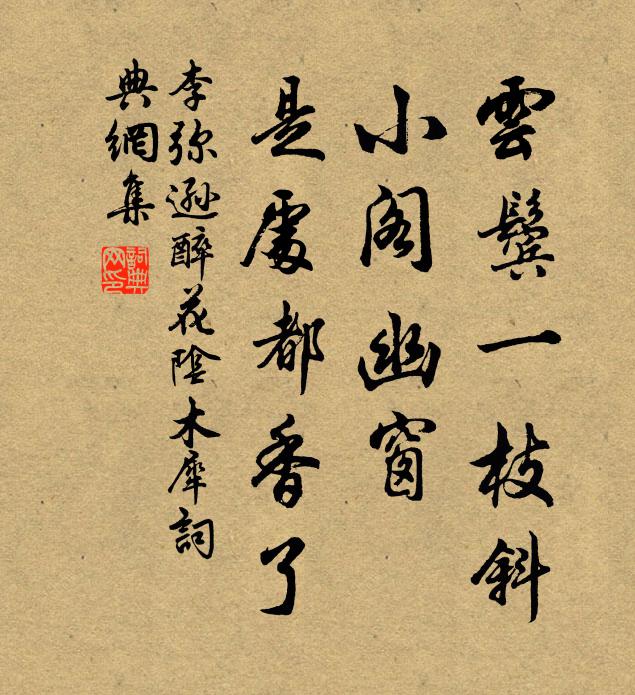 雲鬢一枝斜
小閣幽窗
是處都香了
李弥遜醉花陰木犀詞
典網集
詞典網印